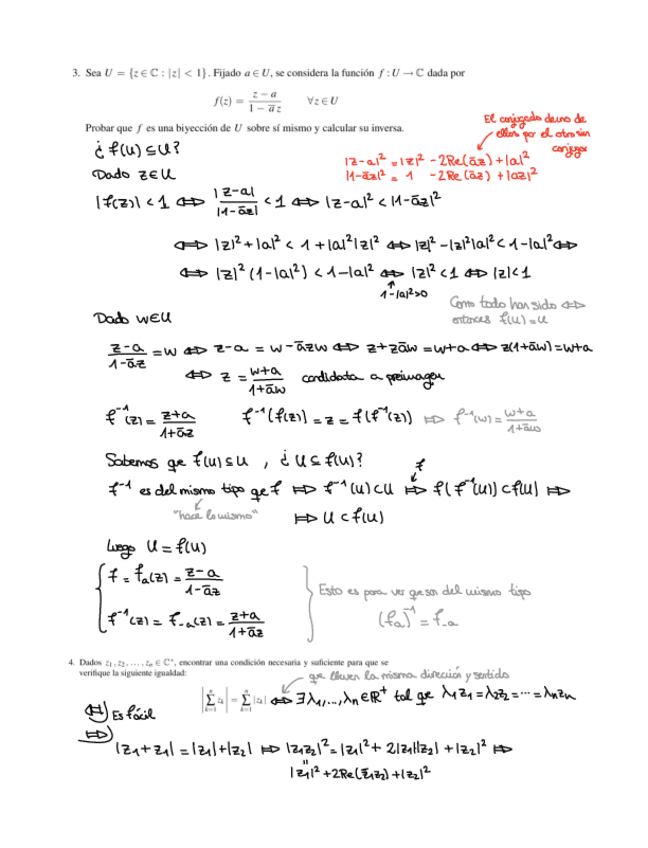 3. Sea U = {z ∈ ℂ : |z| < 1}. Fijado a ∈ U, se considera la función f : U → ℂ dada por
f(z) = (z − a)/(1 − a̅ z)    ∀z ∈ U
Probar que f es una biyección de U sobre sí mismo y calcular su inversa.
El conjugado de uno de
ellos por el otro sin
conjugar
¿f(U) ⊆ U?
|z-a|² = |z|² - 2Re(a̅z) + |a|²
Dado z∈U
|1-a̅z|² = 1 - 2Re(a̅z) + |az|²
|f(z)| < 1 ⇔ |z-a|/|1-a̅z| < 1 ⇔ |z-a|² < |1-a̅z|²
⇔ |z|² + |a|² < 1 + |a|²|z|² ⇔ |z|² - |z|²|a|² < 1 - |a|² ⇔
⇔ |z|² (1-|a|²) < 1-|a|² ⇔ |z|² < 1 ⇔ |z| < 1
1-|a|²>0
Como todo han sido ⇔
entonces f(U) = U
Dado w∈U
(z-a)/(1-a̅z) = w ⇔ z-a = w - a̅zw ⇔ z + za̅w = w+a ⇔ z(1+a̅w) = w+a
⇔ z = (w+a)/(1+a̅w) candidata a preimagen
f⁻¹(z) = (z+a)/(1+a̅z)    f⁻¹(f(z)) = z = f(f⁻¹(z)) ⇒ f⁻¹(w) = (w+a)/(1+a̅w)
Sabemos que f(U) ⊆ U, ¿U ⊆ f(U)?
f
f⁻¹ es del mismo tipo que f ⇒ f⁻¹(U) ⊂ U ⇒ f(f⁻¹(U)) ⊂ f(U) ⇒
"hace lo mismo" ⇒ U ⊂ f(U)
Luego U = f(U)
f = fₐ(z) = (z-a)/(1-a̅z)
Esto es para ver que son del mismo tipo
f⁻¹(z) = f₋ₐ(z) = (z+a)/(1+a̅z)
(fₐ)⁻¹ = f₋ₐ
4. Dados z₁, z₂, …, zₙ ∈ ℂ*, encontrar una condición necesaria y suficiente para que se
verifique la siguiente igualdad:
que lleven la misma dirección y sentido
|∑ₖ₌₁ⁿ zₖ| = ∑ₖ₌₁ⁿ |zₖ| ⇔ ∃λ₁,...,λₙ∈ℝ⁺ tal que λ₁z₁ = λ₂z₂ = ... = λₙzₙ
⇐) Es fácil
⇒)
|z₁+z₁| = |z₁|+|z₂| ⇒ |z₁z₂|² = |z₁|² + 2|z₁||z₂| + |z₂|² ⇒
||
|z₁|² + 2Re(z̅₁z₂) + |z₂|²